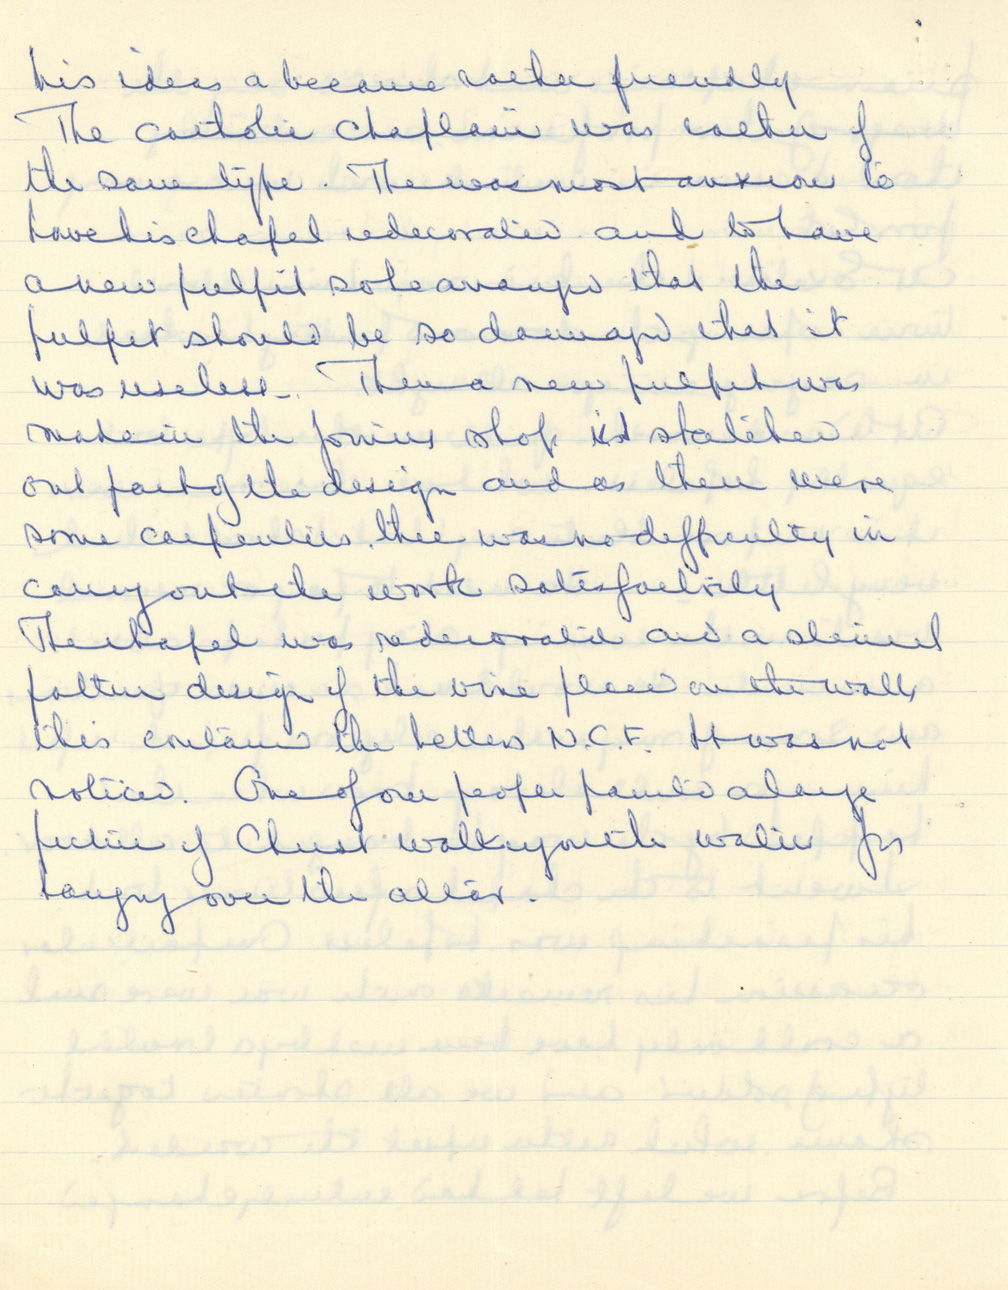 his ideas & became rather friendly
The Catholic Chaplain was rather of
the same type. The was most anxious to
have his chapel redecorated and to have
a new pulpit so he arranged that the
pulpit should be so damaged that it
was useless. Then a new pulpit was
made in the joiners shop I'd sketched
out part of the design and as there were
some carpenters, there was no difficulty in
carrying out the work satisfactorily
The chapel was redecorated and a stencil
pattern design of the vine placed on the walls,
this contained the letters N.C.F. It was not
noticed. One of our people painted a large
picture of Christ walking on the water for
hanging over the altar.